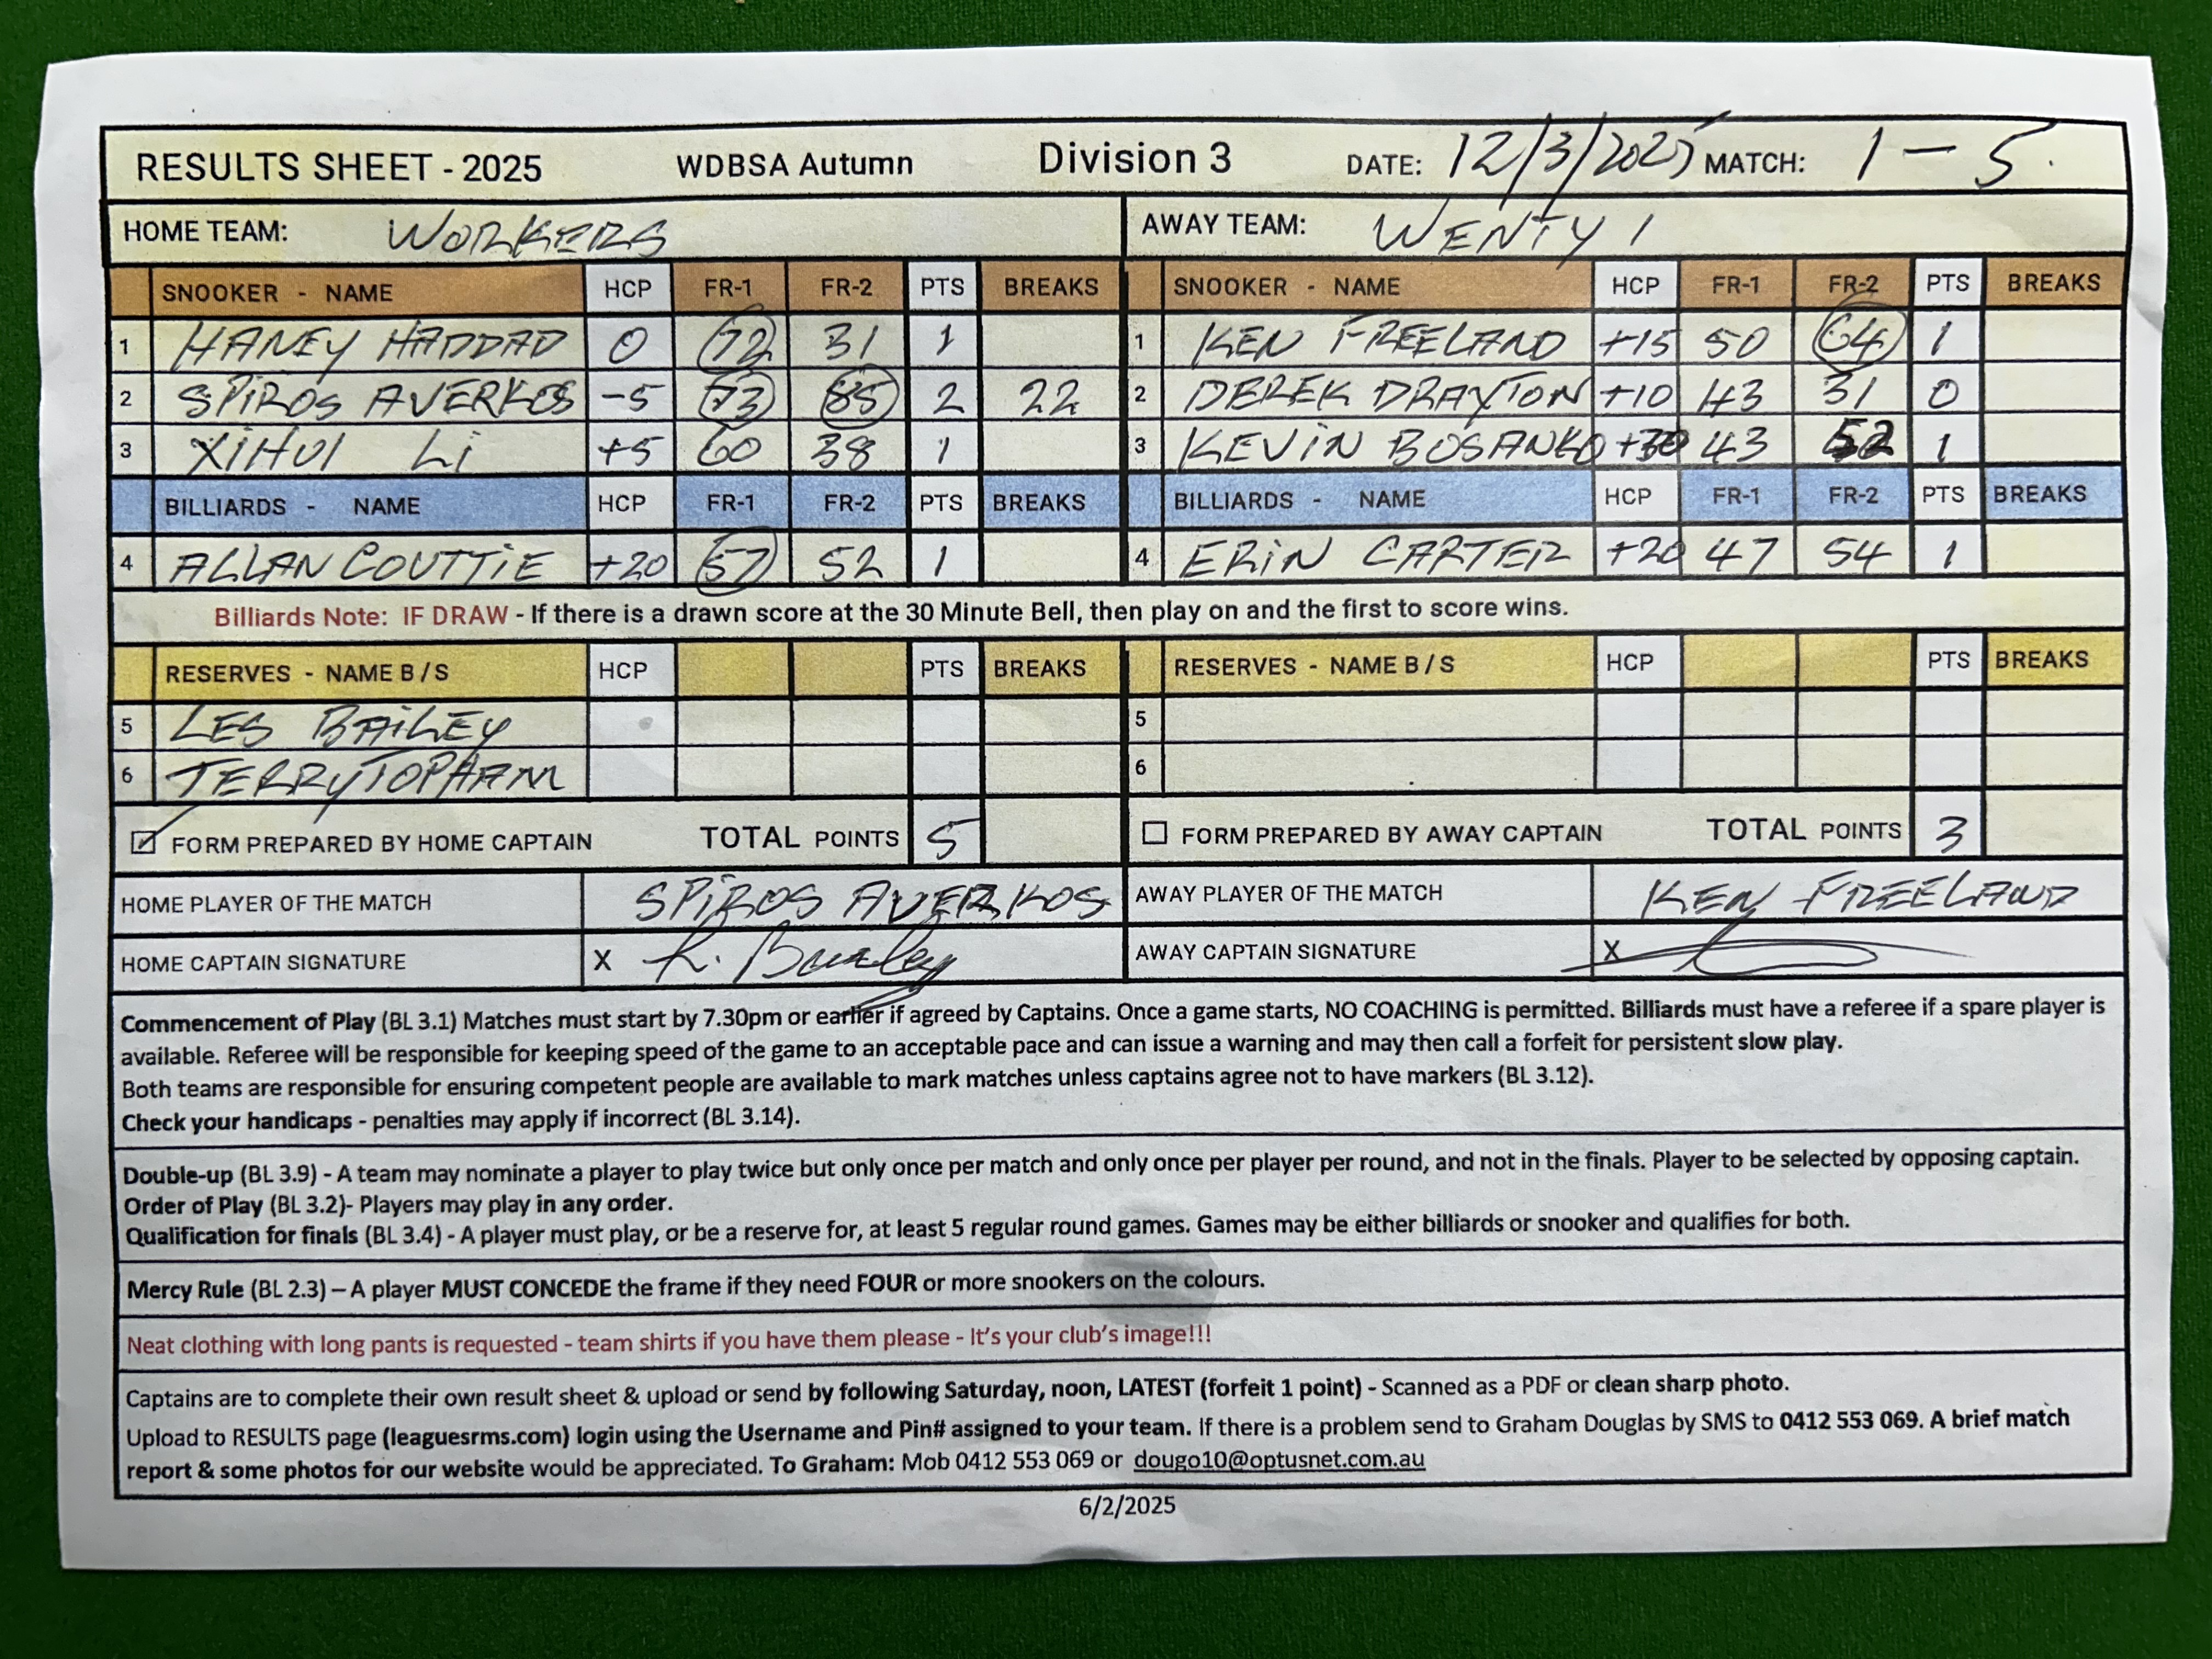 RESULTS SHEET - 2025 WDBSA Autumn Division 3 DATE: 12/3/2025 MATCH: 1 - 5.
HOME TEAM: WORKERS AWAY TEAM: WENTY 1
SNOOKER - NAME HCP FR-1 FR-2 PTS BREAKS SNOOKER - NAME HCP FR-1 FR-2 PTS BREAKS
1 HANEY HADDAD 0 72 31 1 1 KEN FREELAND +15 50 64 1
2 SPIROS AVERKOS -5 73 85 2 22 2 DEREK DRAYTON +10 43 31 0
3 XIHUI Li +5 60 38 1 3 KEVIN BOSANKO 43 52 1
BILLIARDS - NAME HCP FR-1 FR-2 PTS BREAKS BILLIARDS - NAME HCP FR-1 FR-2 PTS BREAKS
4 ALLAN COUTTIE +20 57 52 1 4 ERIN CARTER +20 47 54 1
Billiards Note: IF DRAW - If there is a drawn score at the 30 Minute Bell, then play on and the first to score wins.
RESERVES - NAME B / S HCP PTS BREAKS RESERVES - NAME B / S HCP PTS BREAKS
5 LES BAILEY 5
6 TERRY TOPHAM 6
FORM PREPARED BY HOME CAPTAIN TOTAL POINTS 5 FORM PREPARED BY AWAY CAPTAIN TOTAL POINTS 3
HOME PLAYER OF THE MATCH SPIROS AVERKOS AWAY PLAYER OF THE MATCH KEN FREELAND
HOME CAPTAIN SIGNATURE X AWAY CAPTAIN SIGNATURE X
Commencement of Play (BL 3.1) Matches must start by 7.30pm or earlier if agreed by Captains. Once a game starts, NO COACHING is permitted. Billiards must have a referee if a spare player is
available. Referee will be responsible for keeping speed of the game to an acceptable pace and can issue a warning and may then call a forfeit for persistent slow play.
Both teams are responsible for ensuring competent people are available to mark matches unless captains agree not to have markers (BL 3.12).
Check your handicaps - penalties may apply if incorrect (BL 3.14).
Double-up (BL 3.9) - A team may nominate a player to play twice but only once per match and only once per player per round, and not in the finals. Player to be selected by opposing captain.
Order of Play (BL 3.2)- Players may play in any order.
Qualification for finals (BL 3.4) - A player must play, or be a reserve for, at least 5 regular round games. Games may be either billiards or snooker and qualifies for both.
Mercy Rule (BL 2.3) – A player MUST CONCEDE the frame if they need FOUR or more snookers on the colours.
Neat clothing with long pants is requested - team shirts if you have them please - It's your club's image!!!
Captains are to complete their own result sheet & upload or send by following Saturday, noon, LATEST (forfeit 1 point) - Scanned as a PDF or clean sharp photo.
Upload to RESULTS page (leaguesrms.com) login using the Username and Pin# assigned to your team. If there is a problem send to Graham Douglas by SMS to 0412 553 069. A brief match
report & some photos for our website would be appreciated. To Graham: Mob 0412 553 069 or dougo10@optusnet.com.au
6/2/2025